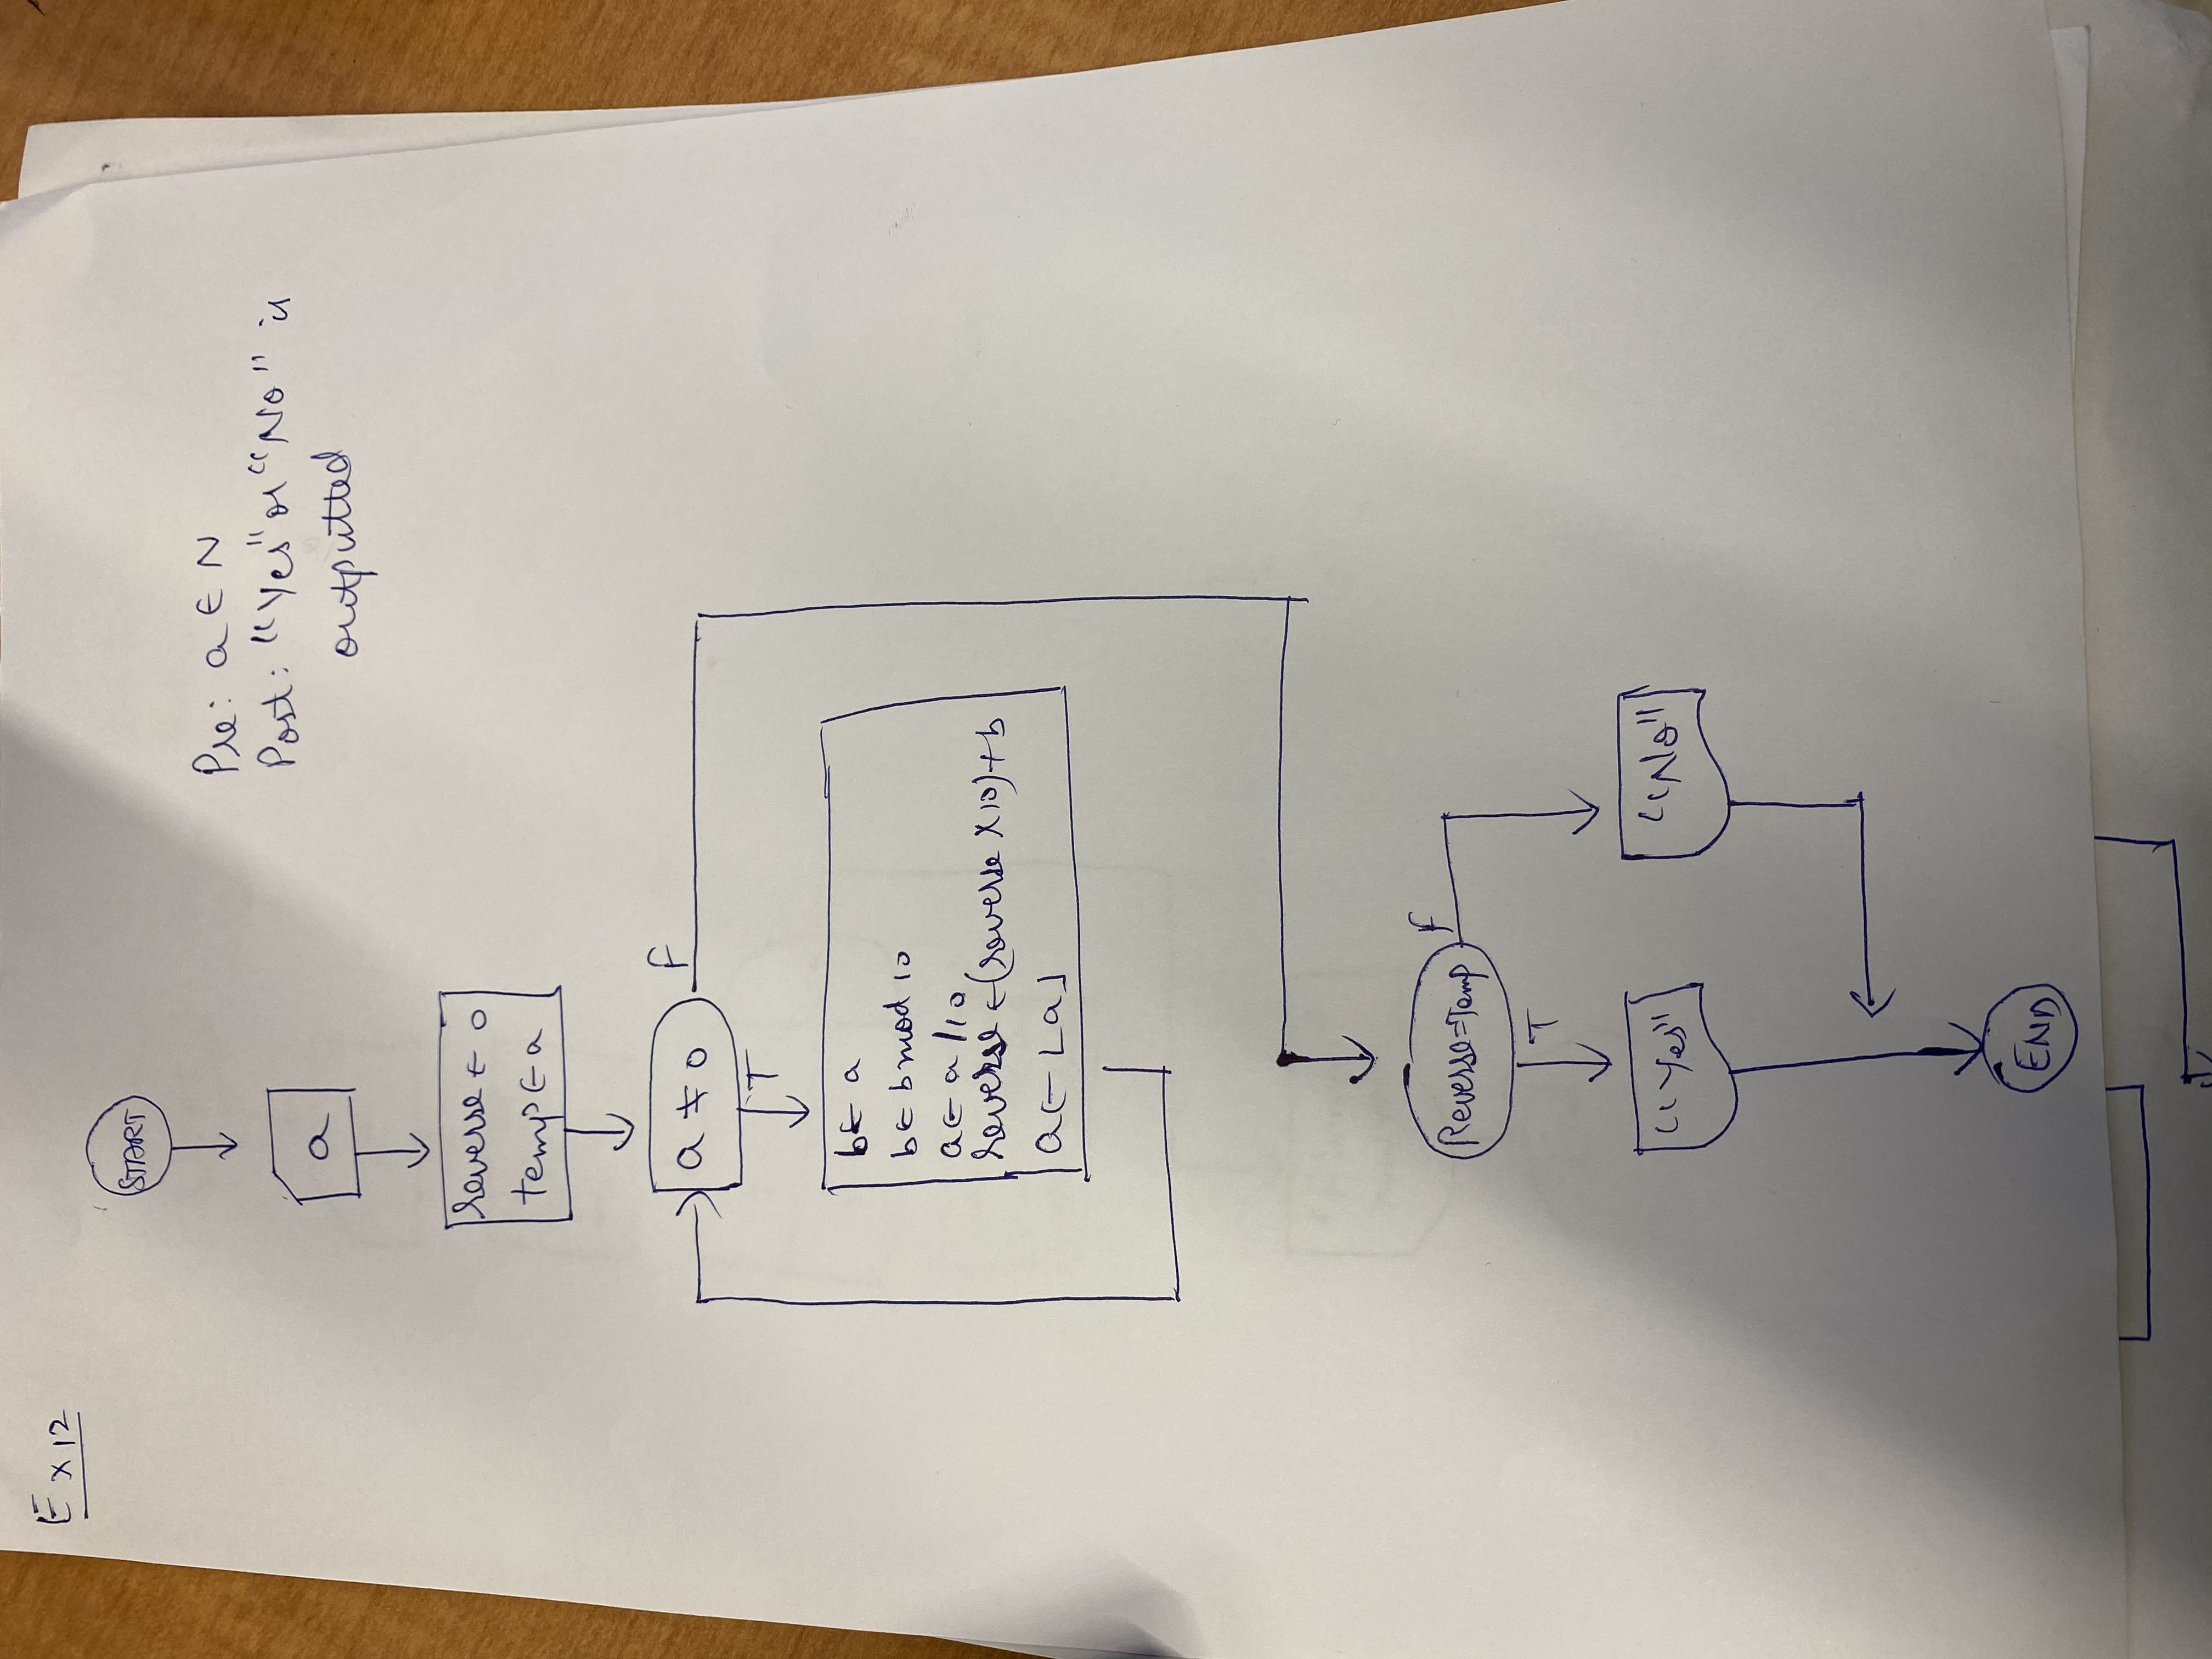 Ex 12
START
Pre: a ∈ N
Post: "Yes" or "No" is
outputted
a
reverse ← 0
temp ← a
a ≠ 0
F
T
b ← a
b ← b mod 10
a ← a // 10
reverse ← (reverse × 10) + b
a ← ⌊a⌋
Reverse = Temp
F
T
"Yes"
"No"
END